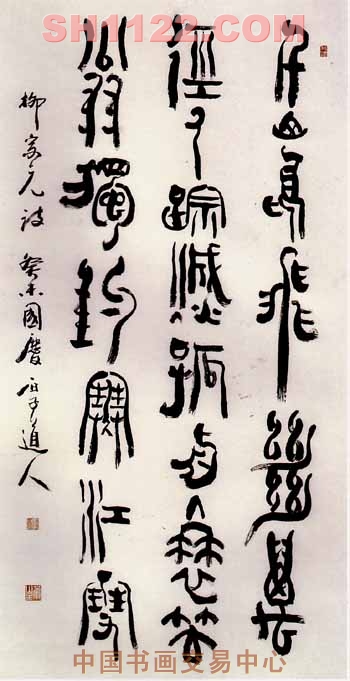 SH1122.COM
千山鳥飛絕萬
徑人蹤滅孤舟蓑笠
翁獨釣寒江雪
柳宗元詩 癸未國慶 子道人
中国书画交易中心